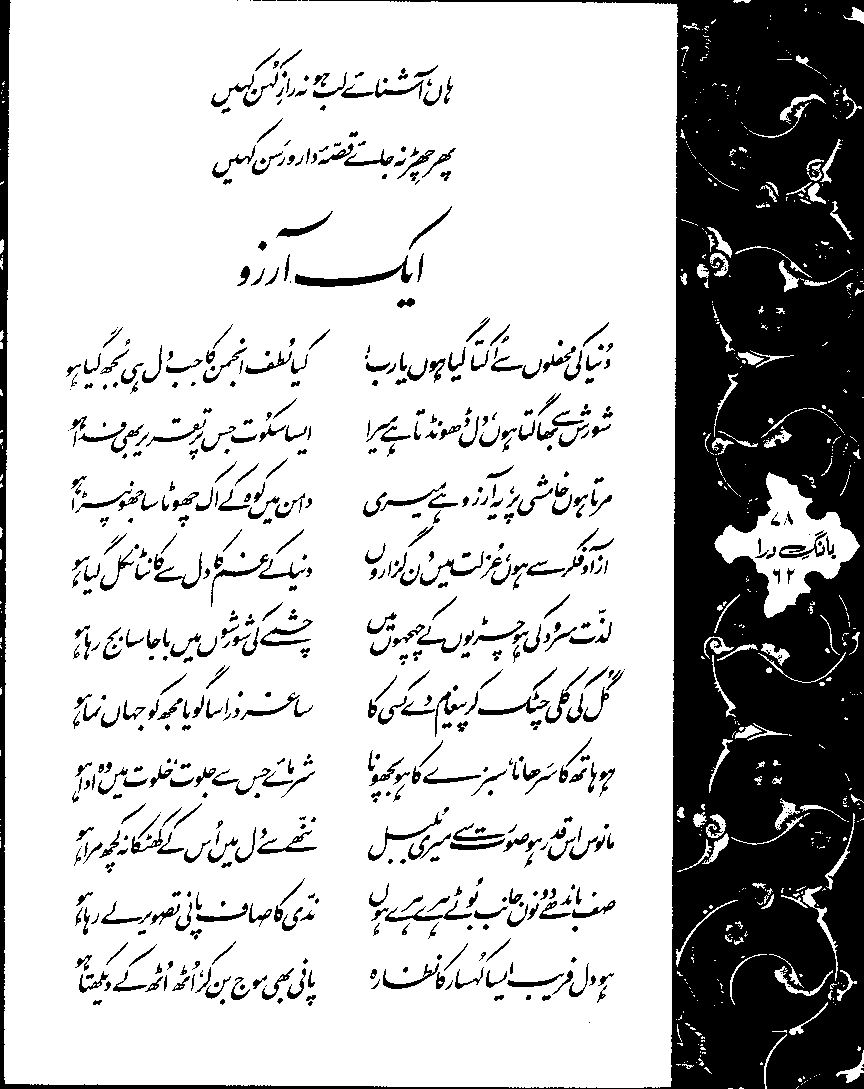 ہاں، آشنائے لب ہو نہ رازِ کہن کہیں
پھر چھڑ نہ جائے قصۂ دار و رسن کہیں
ایک آرزو
دُنیا کی محفلوں سے اُکتا گیا ہوں یا رب! کیا لُطف انجمن کا جب دل ہی بُجھ گیا ہو
شورش سے بھاگتا ہوں، دل ڈھونڈتا ہے میرا ایسا سکُوت جس پر تقریر بھی فدا ہو
مرتا ہوں خامشی پر، یہ آرزو ہے میری دامن میں کوہ کے اک چھوٹا سا جھونپڑا ہو
آزاد فکر سے ہوں، عُزلت میں دن گزاروں دنیا کے غم کا دل سے کانٹا نکل گیا ہو
لذّت سرود کی ہو چڑیوں کے چہچہوں میں چشمے کی شورشوں میں باجا سا بج رہا ہو
گُل کی کلی چٹک کر پیغام دے کسی کا ساغر ذرا سا گویا مجھ کو جہاں نما ہو
ہو ہاتھ کا سَرھانا، سبزے کا ہو بچھونا شرمائے جس سے جلوت، خلوت میں وہ ادا ہو
مانوس اس قدر ہو صورت سے میری بُلبل ننھّے سے دل میں اُس کے کھٹکا نہ کچھ مرا ہو
صف باندھے دونوں جانب بُوٹے ہرے ہرے ہوں ندّی کا صاف پانی تصویر لے رہا ہو
ہو دل فریب ایسا کُہسار کا نظارہ پانی بھی موج بن کر، اُٹھ اُٹھ کے دیکھتا ہو
۷۸
بانگِ درا
۶۲